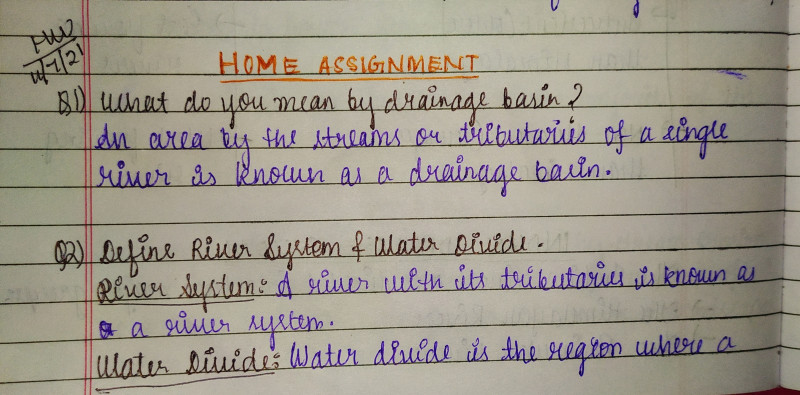 HW
14/7/21
HOME ASSIGNMENT
Q1) What do you mean by drainage basin?
An area by the streams or tributaries of a single
river is known as a drainage basin.
Q2) Define River System & Water Divide.
River System: A river with its tributaries is known as
a river system.
Water Divide: Water divide is the region where a